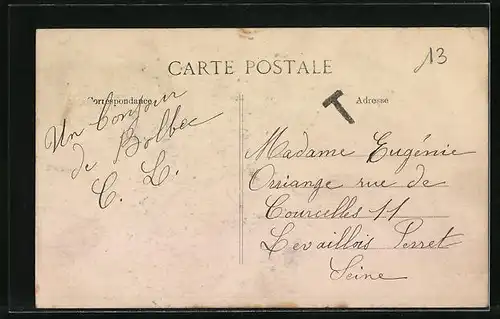 13
CARTE POSTALE
Correspondance
Adresse
T
Un bonjour
de Bolbec
C. L.
Madame Eugénie
Orriange rue de
Courcelles 11
Levaillois Perret
Seine